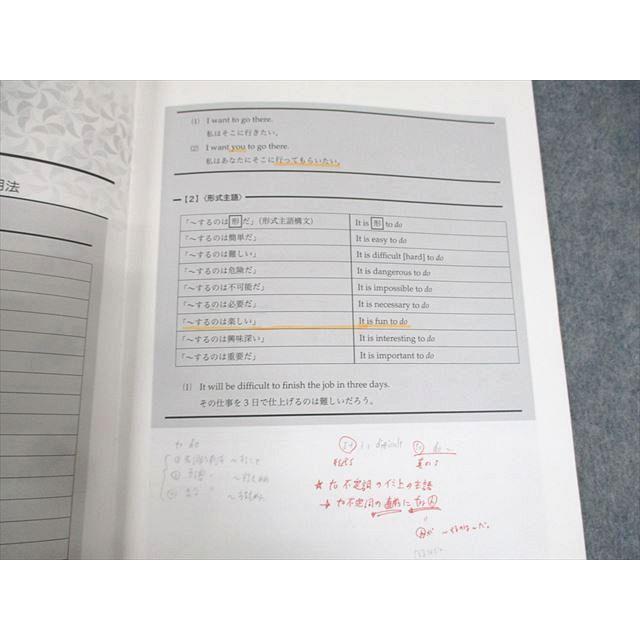 用法
(1) I want to go there.
私はそこに行きたい。
(2) I want you to go there.
私はあなたにそこに行ってもらいたい。
【2】〈形式主語〉
「～するのは形だ」(形式主語構文) It is 形 to do
「～するのは簡単だ」 It is easy to do
「～するのは難しい」 It is difficult [hard] to do
「～するのは危険だ」 It is dangerous to do
「～するのは不可能だ」 It is impossible to do
「～するのは必要だ」 It is necessary to do
「～するのは楽しい」 It is fun to do
「～するのは興味深い」 It is interesting to do
「～するのは重要だ」 It is important to do
(1) It will be difficult to finish the job in three days.
その仕事を3日で仕上げるのは難しいだろう。
to do
It is difficult to do ～
真のS
★ to 不定詞のイミ上の主語
→ to不定詞の直前に for